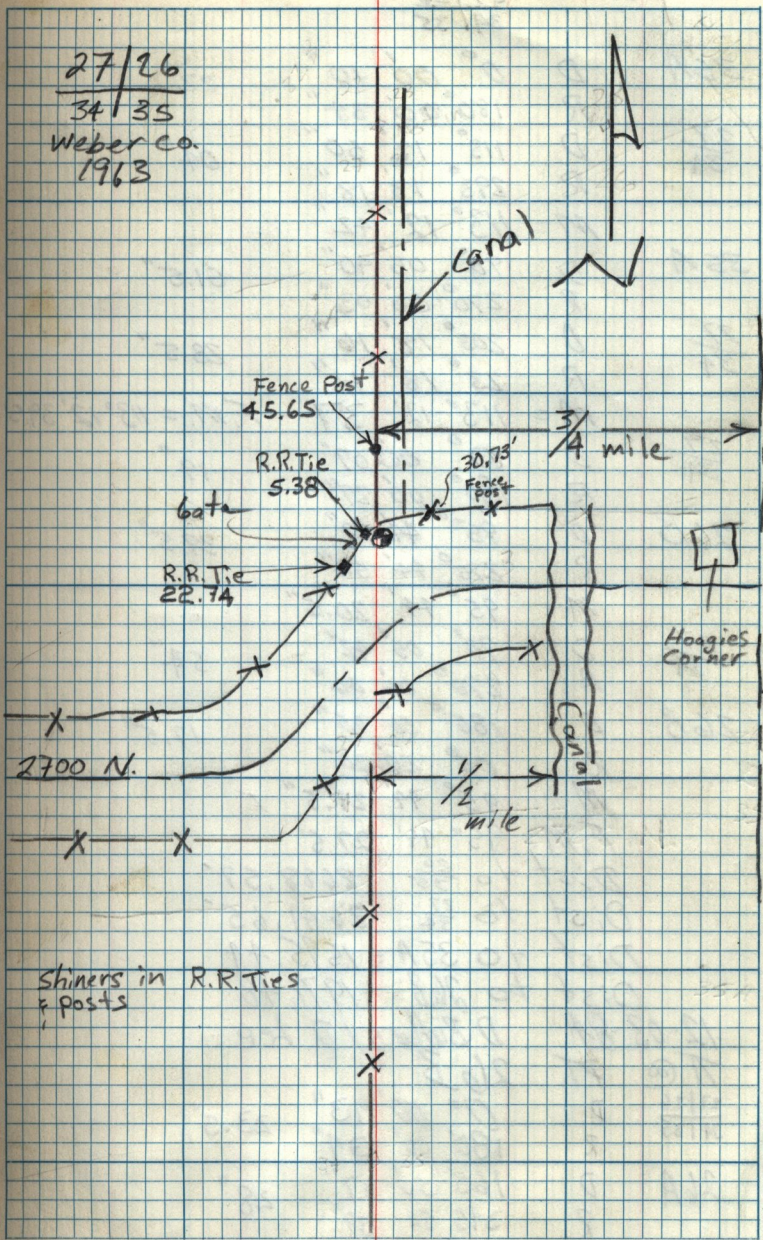 27 | 26
34 | 35
Weber Co.
1963
Canal
Fence Post
45.65
3/4 mile
R.R.Tie
5.38
30.73'
Fence
post
Gate
R.R.Tie
22.74
Hoagies
Corner
Canal
2700 N.
1/2
mile
Shiners in R.R. Ties
& posts